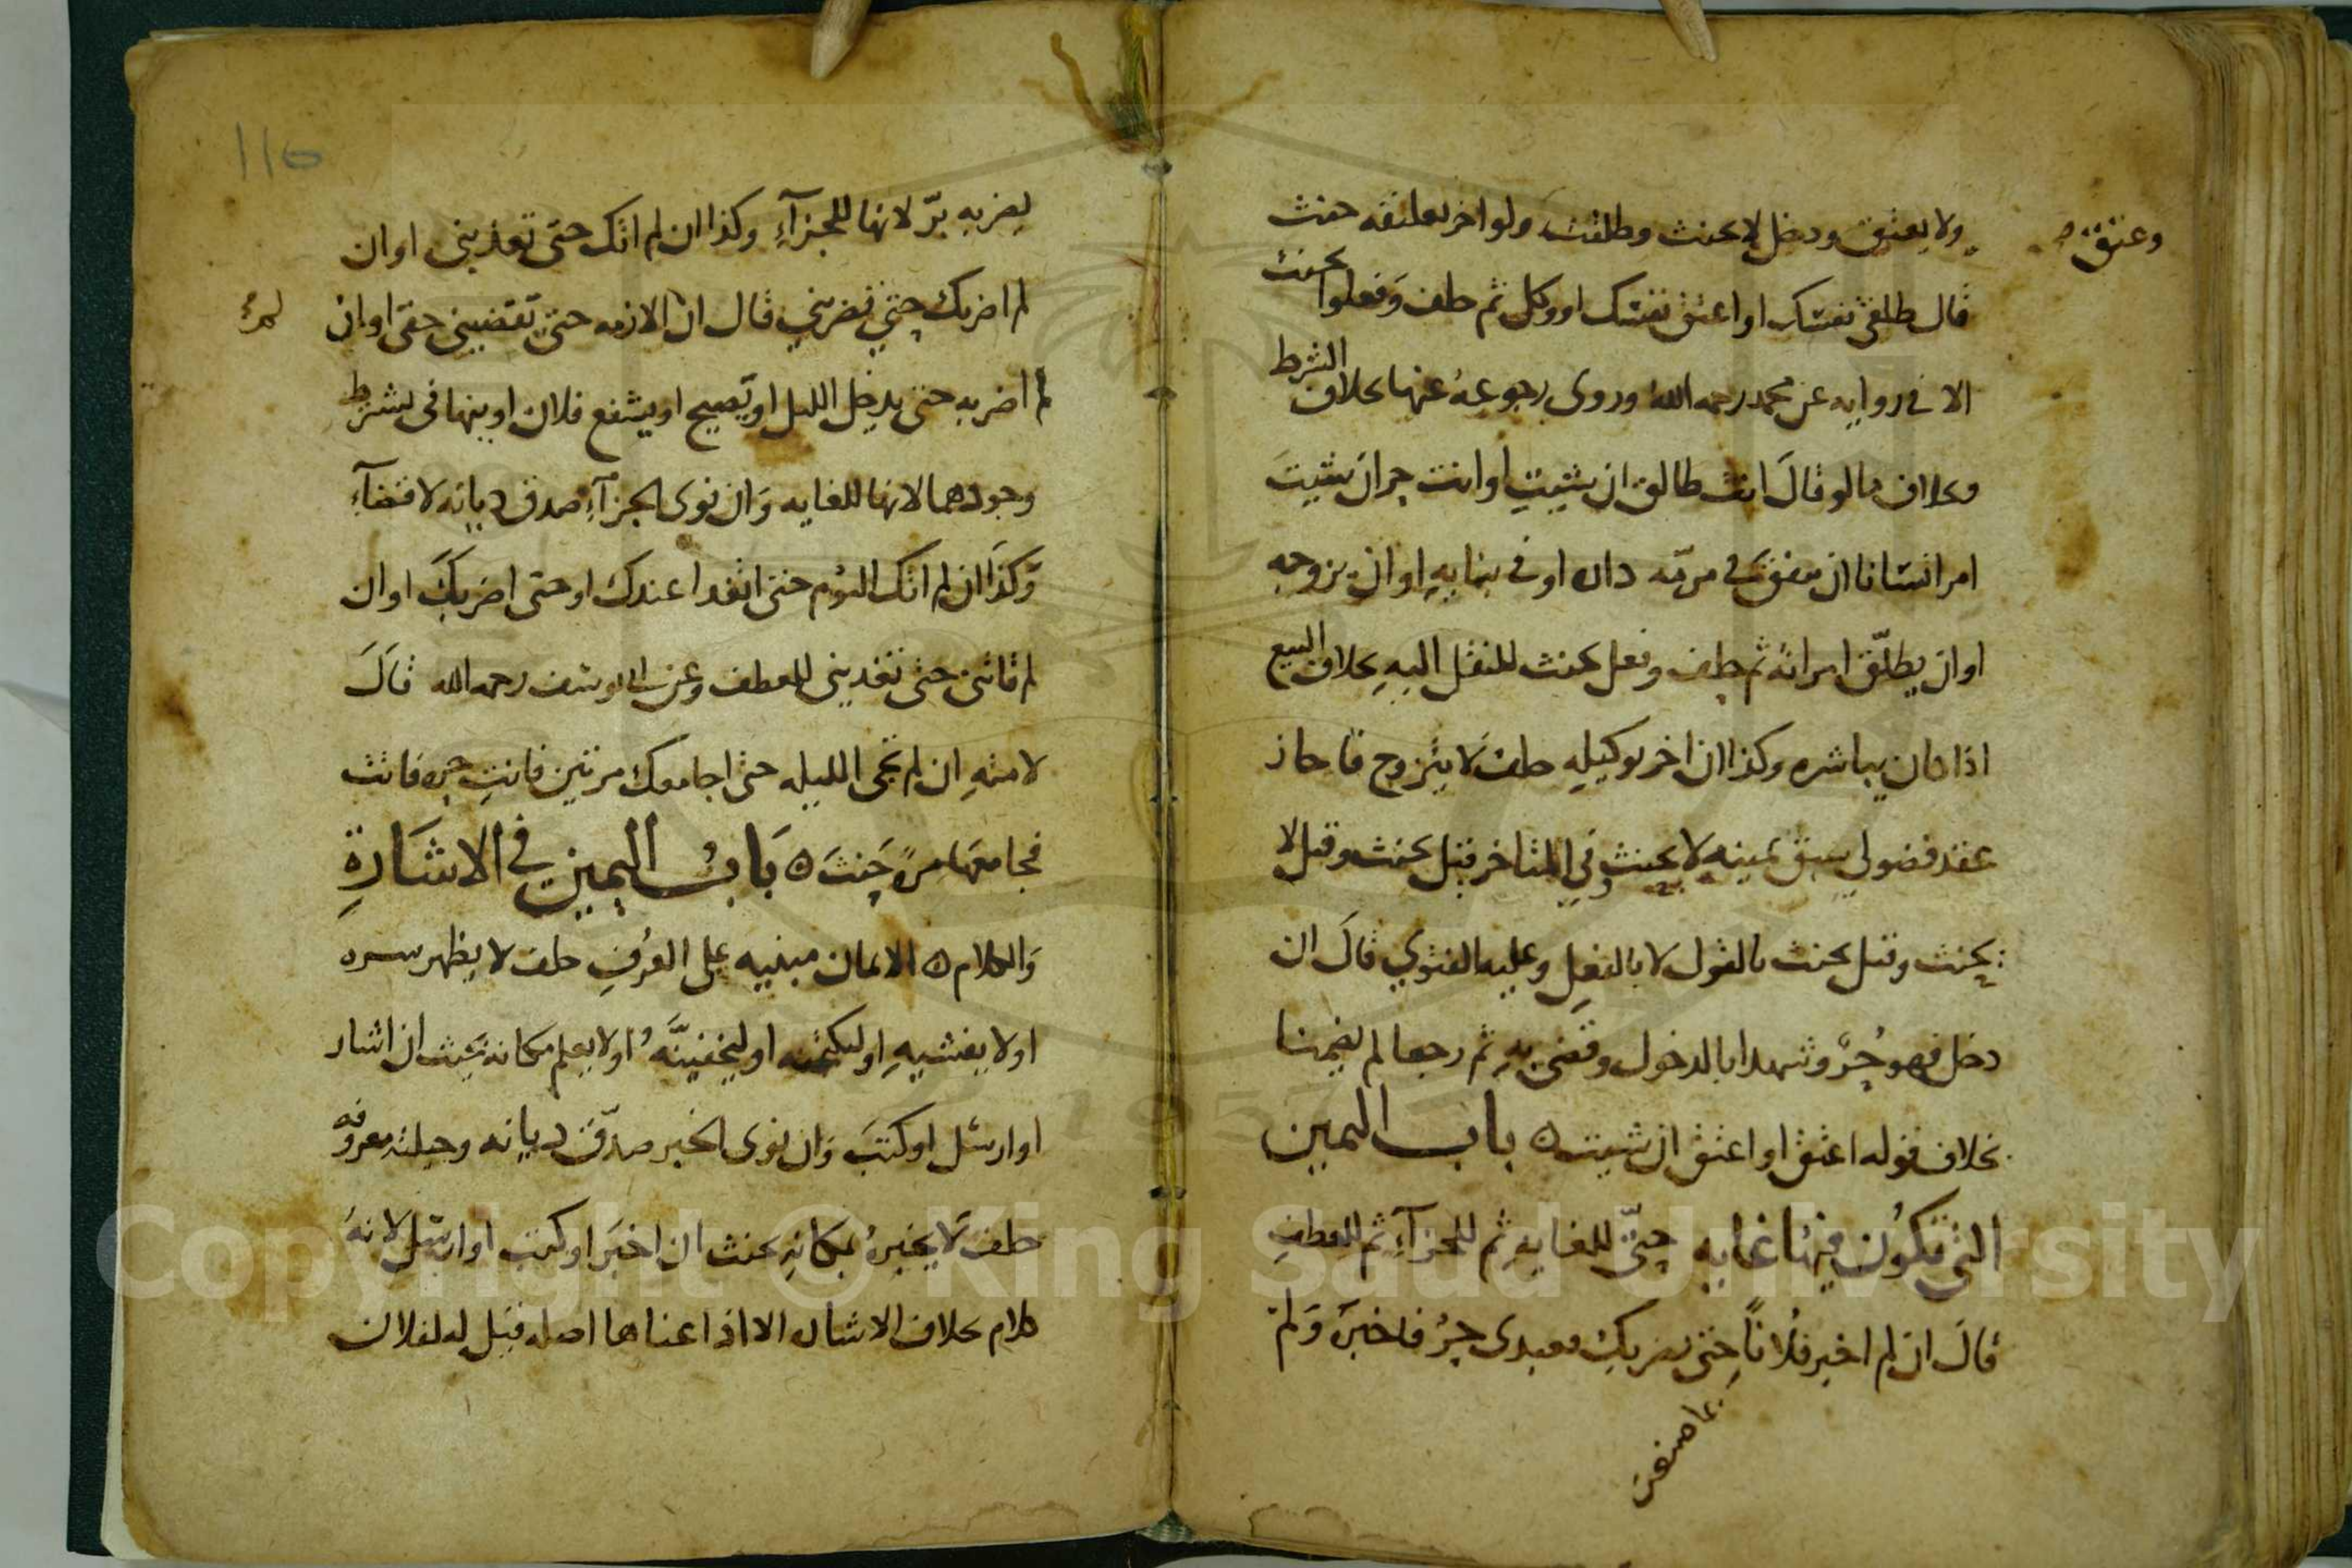 وعتق
ولا يعتق ودخل لا يحنث وطلقت ولو اخر تعليقه حنث
قال طلقى نفسك او اعتق نفسك او وكل ثم حلف وفعلوا يحنث
الا فى رواية عن محمد رحمه الله وروى رجوعه عنها بخلاف الشرط
وبخلاف ما لو قال انت طالق ان شيت او انت حر ان شيت
امر انسانا ان ينفق فى مرمة داره او فى بنايه او ان يزوجه
او ان يطلق امراته ثم حلف وفعل يحنث للنقل اليه بخلاف البيع
اذا كان يباشره وكذا ان اخر توكيله حلف لا يتزوج فاجاز
عقد فضولي سبق يمينه لا يحنث وفي المتاخر قيل يحنث وقيل لا
يحنث وقيل يحنث بالقول لا بالفعل وعليه الفتوي قال ان
دخل فهو حر وشهدا بالدخول وقضى به ثم رجعا لم يضمنا
بخلاف قوله اعتق او اعتق ان شيت ه باب اليمين
التى تكون فيها غاية حتى للغاية ثم للجزآء ثم للعطف
قال ان لم اخبر فلانا حتى يضربك فعبدى حر فاخبره ولم
بما صنعت
110
يضربه بر لانها للجزآء وكذا ان لم اتك حتى تغدينى او ان
لم اضربك حتى تضربني قال ان لم الازمه حتى تقضينى حقى او ان
لم اضربه حتى يدخل الليل او تصبح او يشفع فلان او ينهانى يشترط
وجودهما لانها للغاية وان نوى الجزآء صدق ديانة لا قضآء
وكذا ان لم اتك اليوم حتى اتغدا عندك او حتى اضربك او ان
لم تاتنى حتى تغدينى للعطف وعن ابى يوسف رحمه الله قال
لامته ان لم تجى الليلة حتى اجامعك مرتين فانت حره فاتت
فجامعها مرة حنث ه باب اليمين فى الاشارة
والكلام ه الايمان مبنيه على العرف حلف لا يظهر سره
او لا يفشيه او ليكتمنه او ليخفينه او لا يعلم مكانه يحنث ان اشار
او ارسل او كتب وان نوى الخبر صدق ديانة وحيلته معروفه
حلف لا يخبره بمكانه يحنث ان اخبر او كتب او ارسل لانه
كلام بخلاف الاشاره الا اذا عناها اصله قيل له لفلان
Copyright © King Saud University
1957